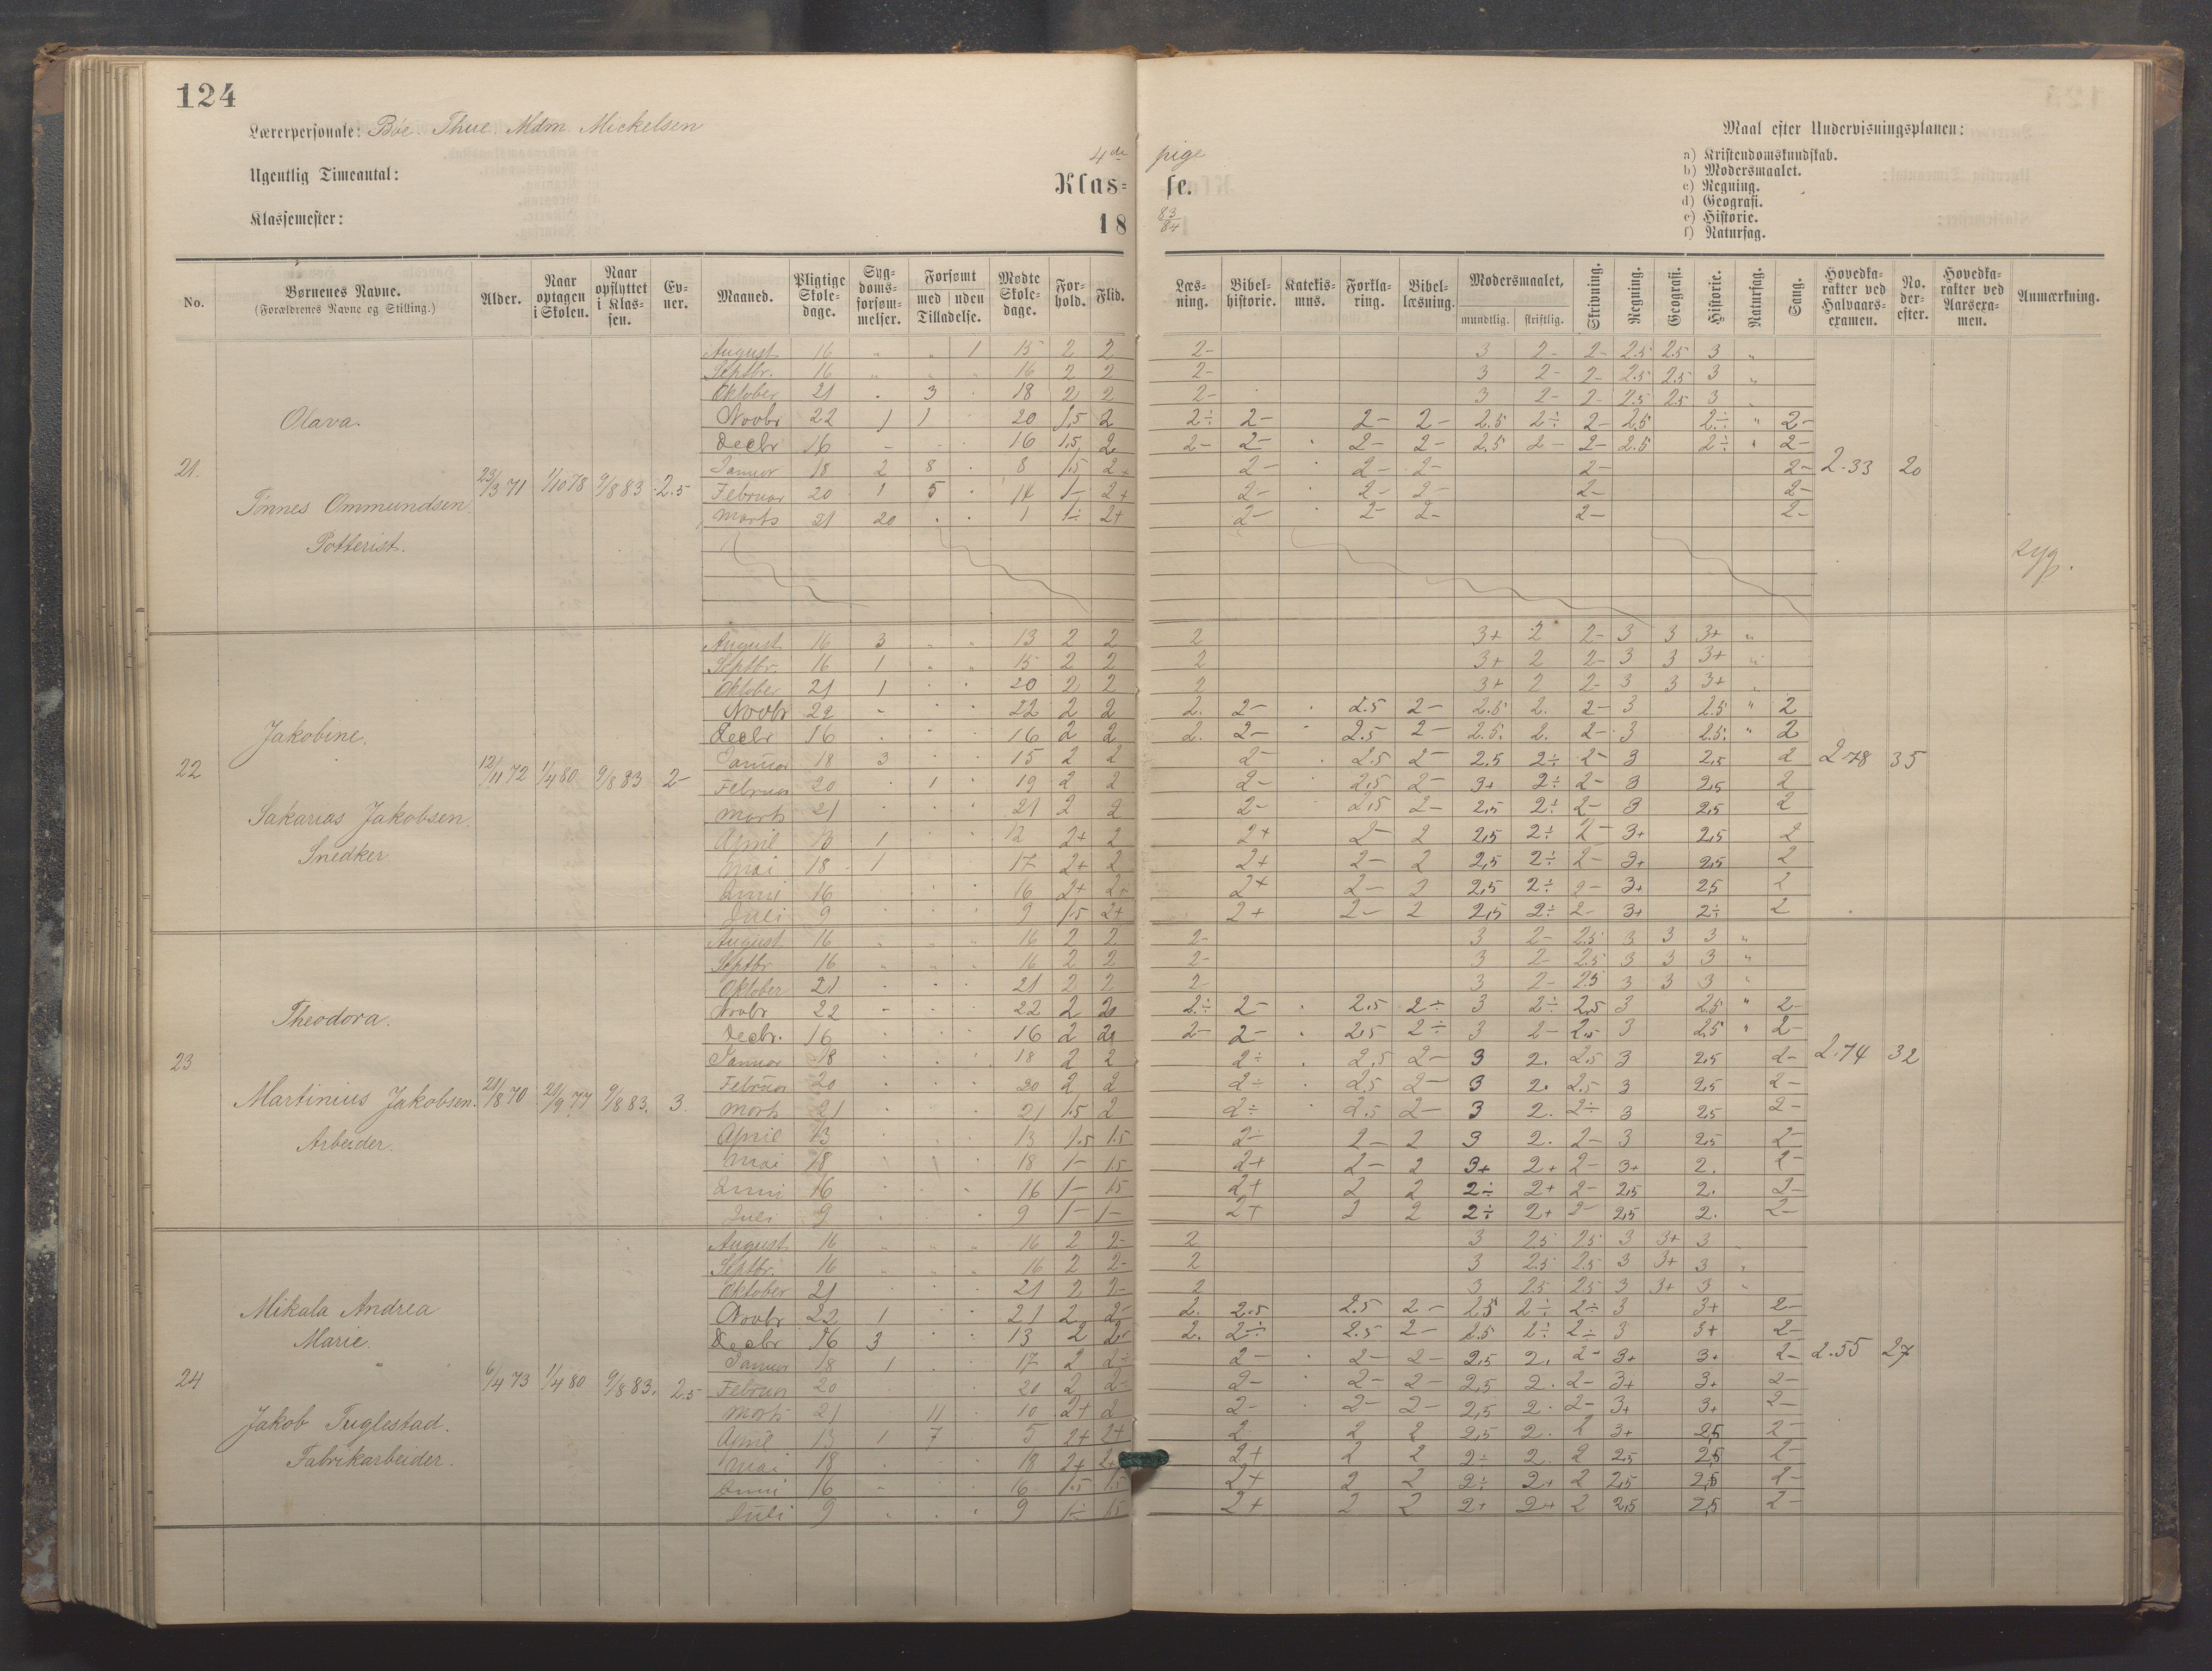 124
Lærerpersonale: Böe Thue Mdm. Mickelsen
Ugentlig Timeantal:
Klassemester:
4de pige
Klas= se.
18 83/84
Maal efter Undervisningsplanen:
a) Kristendomskundskab.
b) Modersmaalet.
c) Regning.
d) Geografi.
e) Historie.
f) Naturfag.
No. Børnenes Navne. (Forældrenes Navne og Stilling.) Alder. Naar optagen i Skolen. Naar opflyttet i Klassen. Evner. Maaned. Pligtige Skoledage. Sygdomsforsømmelser. Forsømt med uden Tilladelse. Mødte Skoledage. Forhold. Flid. Læsning. Bibelhistorie. Katekismus. Forklaring. Bibellæsning. Modersmaalet, mundtlig. skriftlig. Skrivning. Regning. Geografi. Historie. Naturfag. Sang. Hovedkarakter ved Halvaarsexamen. No. derefter. Hovedkarakter ved Aarsexamen. Anmærkning.
21. Olava. Tönnes Ommundsen. Potterist. 23/3 71 1/10 78 9/8 83 2.5 2.33 20 syg.
August 16 " " 1 15 2 2 2- 3 2- 2- 2.5 2.5 3 "
Septbr. 16 " " " 16 2 2 2- 3 2- 2- 2.5 2.5 3 "
Oktober 21 . 3 . 18 2 2 2- 3 2- 2- 2.5 2.5 3
Novbr 22 1 1 . 20 1,5 2 2÷ 2- 2- 2- 2.5 2÷ 2- 2.5 2÷ " 2-
Decbr 16 - - . 16 1,5 2 2- 2- 2- 2- 2.5 2- 2- 2.5 2÷ " 2-
Januar 18 2 8 . 8 1.5 2+ 2- 2- 2- 2- 2-
Februar 20 1 5 . 14 1- 2+ 2- 2- 2- 2- 2-
Marts 21 20 . . 1 1÷ 2+ 2- 2- 2- 2- 2-
22 Jakobine. Sakarias Jakobsen. Snedker. 12/11 72 1/4 80 9/8 83 2- 2.78 35
August 16 3 " " 13 2 2 2 3+ 2 2- 3 3 3+ "
Septbr. 16 1 " " 15 2 2 2 3+ 2 2- 3 3 3+ "
Oktober 21 1 . . 20 2 2 2 3+ 2 2- 3 3 3+ "
Novbr 22 - . . 22 2 2 2. 2- 2.5 2- 2.5 2. 2- 3 2.5 " 2
Decbr 16 . . . 16 2 2 2. 2- 2.5 2- 2.5. 2. 2- 3 2.5. " 2
Januar 18 3 . . 15 2 2 2- 2.5 2- 2.5 2÷ 2- 3 2,5 2
Februar 20 . 1 . 19 2 2 2- 2,5 2- 3+ 2÷ 2- 3 2,5 2
Marts 21 . . . 21 2 2 2- 2,5 2- 2,5 2÷ 2- 3 2,5 2
April 13 1 . . 12 2+ 2 2+ 2- 2 2,5 2÷ 2- 3+ 2,5 2
Mai 18 1 . . 17 2+ 2 2+ 2- 2 2,5 2÷ 2- 3+ 2,5 2
Juni 16 . . . 16 2+ 2+ 2+ 2- 2 2,5 2÷ 2- 3+ 2,5 2
Juli 9 . . . 9 1.5 2+ 2+ 2- 2 2,5 2÷ 2- 3+ 2÷ 2
23 Theodora. Martinius Jakobsen. Arbeider. 21/8 70 21/9 77 9/8 83. 3. 2.74 32
August 16 " " " 16 2 2 2- 3 2- 2.5 3 3 3 "
Septbr 16 " " " 16 2 2 2- 3 2- 2.5 3 3 3 "
Oktober 21 . . . 21 2 2 2- 3 2- 2.5 3 3 3 "
Novbr 22 - . . 22 2 2 2÷ 2- 2.5 2÷ 3 2÷ 2,5 3 2.5 " 2-
Decbr. 16 . . . 16 2 2 2- 2- 2,5 2÷ 3 2- 2,5 3 2,5 " 2-
Januar 18 . . . 18 2 2 2÷ 2,5 2- 3 2. 2,5 3 2,5 2-
Februar 20 . . . 20 2 2 2÷ 2,5 2- 3 2. 2.5 3 2,5 2-
Marts 21 . . . 21 1.5 2 2÷ 2,5 2- 3 2. 2÷ 3 2,5 2-
April 13 . . . 13 1.5 1.5 2÷ 2- 2 3 2. 2- 3 2,5 2-
Mai 18 . . . 18 1- 1.5 2+ 2- 2 3+ 2+ 2- 3+ 2. 2-
Juni 16 . . . 16 1- 1.5 2+ 2 2 2÷ 2+ 2- 2,5 2. 2-
Juli 9 . . . 9 1- 1- 2+ 2 2 2÷ 2+ 2- 2,5 2. 2-
24 Mikala Andrea Marie. Jakob Tuglestad. Fabrikarbeider. 6/4 73 1/4 80 9/8 83. 2.5 2.55 27
August 16 " " " 16 2 2- 2 3 2.5 2.5 3 3+ 3 "
Septbr. 16 " " " 16 2 2- 2 3 2.5 2.5 3 3+ 3 "
Oktober 21 . . . 21 2 2- 2 3 2.5 2.5 3 3+ 3 "
Novbr 22 1 . . 21 2 2- 2. 2.5 2.5 2- 2.5 2÷ 2÷ 3 3+ 2-
Decbr 16 3 . . 13 2 2 2. 2÷ 2.5 2- 2.5 2÷ 2÷ 3 3+ 2-
Januar 18 1 . . 17 2 2÷ 2- 2- 2- 2,5 2. 2- 3+ 3+ 2-
Februar 20 . . . 20 2 2- 2- 2- 2- 2,5 2. 2- 3+ 3+ 2-
Marts 21 . 11 . 10 2+ 2 2- 2- 2- 2,5 2. 2- 3+ 3+ 2-
April 13 1 7 . 5 2+ 2+ 2 2 2 2,5 2. 2 3+ 2,5 2-
Mai 18 . . . 18 2+ 2+ 2+ 2 2 2÷ 2. 2 2,5 2,5 2-
Juni 16 . . . 16 1.5 1.5 2+ 2 2 2÷ 2+ 2 2,5 2,5 2-
Juli 9 . . . 9 1÷ 1.5 2+ 2 2 2+ 2+ 2 2,5 2,5 2-